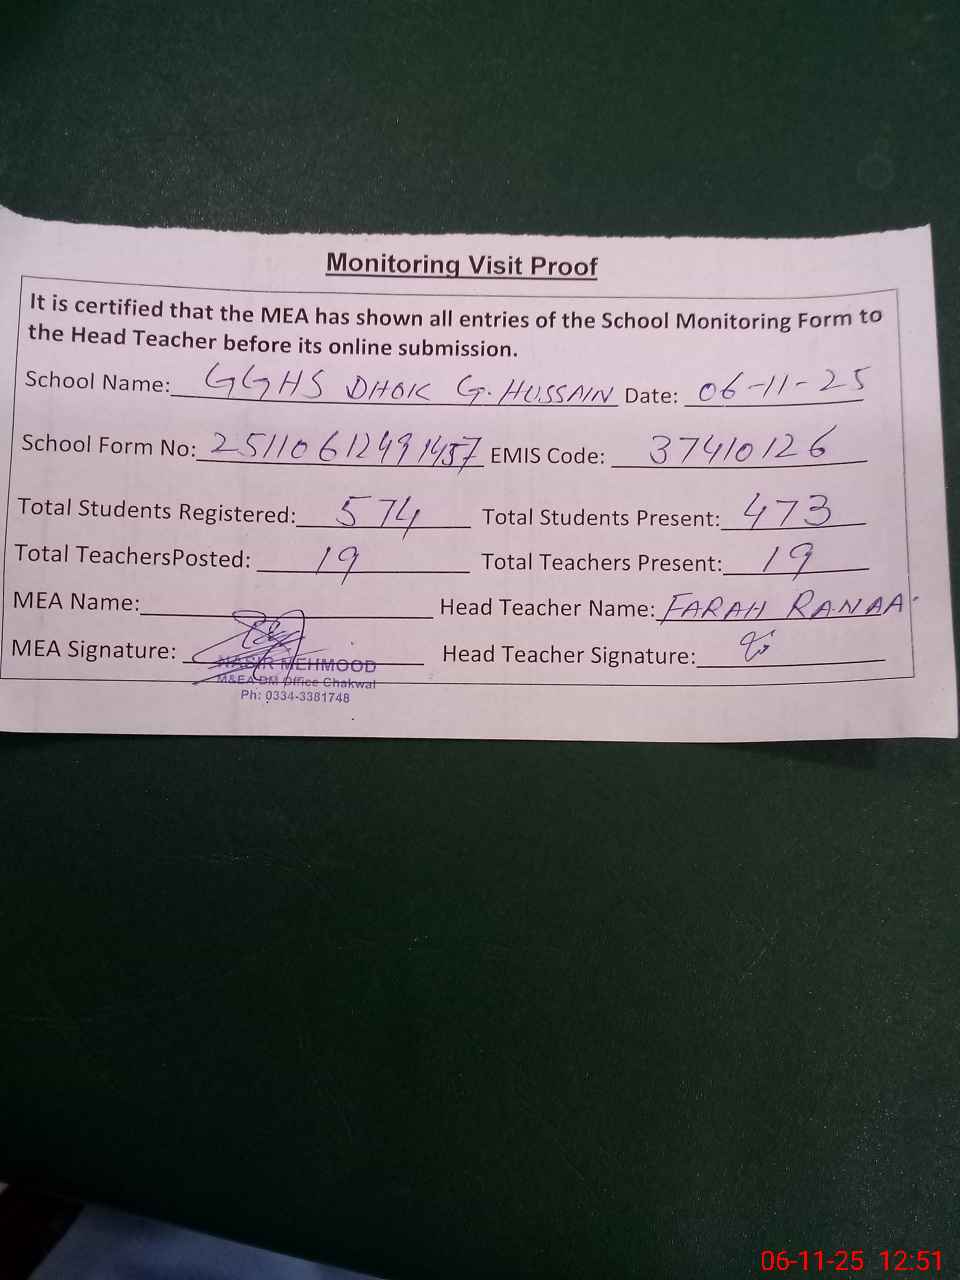 Monitoring Visit Proof
It is certified that the MEA has shown all entries of the School Monitoring Form to
the Head Teacher before its online submission.
School Name: GGHS DHOK G. HUSSAIN Date: 06-11-25
School Form No: 25110612491457 EMIS Code: 37410126
Total Students Registered: 574 Total Students Present: 473
Total TeachersPosted: 19 Total Teachers Present: 19
MEA Name: Head Teacher Name: FARAH RANAA
MEA Signature: Head Teacher Signature:
NASIR MEHMOOD
M&EA DM Office Chakwal
Ph: 0334-3381748
06-11-25 12:51